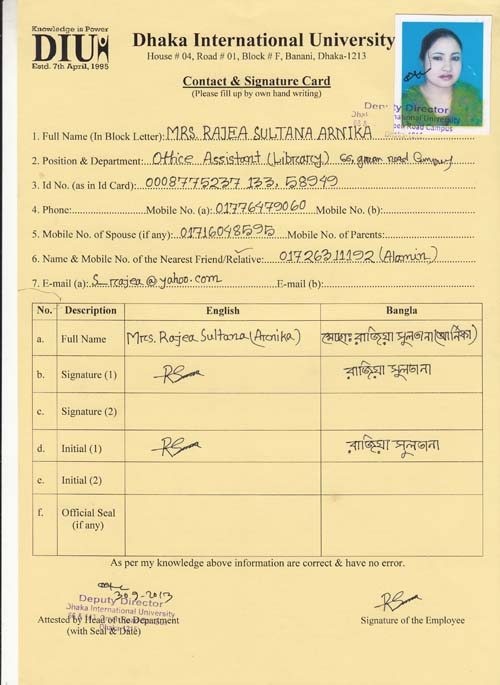 Knowledge is Power
DIU
Estd. 7th April, 1995
Dhaka International University
House # 04, Road # 01, Block # F, Banani, Dhaka-1213
Contact & Signature Card
(Please fill up by own hand writing)
Deputy Director
1. Full Name (In Block Letter): MRS. RAJEA SULTANA ARNIKA
2. Position & Department: Office Assistant (Library) 66, green road Company
3. Id No. (as in Id Card): 0008775237 133, 58949
4. Phone: Mobile No. (a): 01776479060 Mobile No. (b):
5. Mobile No. of Spouse (if any): 01716048595 Mobile No. of Parents:
6. Name & Mobile No. of the Nearest Friend/Relative: 01726311192 (Alamin)
7. E-mail (a): S_rajea@yahoo.com E-mail (b):
No. Description English Bangla
a. Full Name Mrs. Rajea Sultana (Arnika) মোছাঃ রাজিয়া সুলতানা (আর্নিকা)
b. Signature (1) রাজিয়া সুলতানা
c. Signature (2)
d. Initial (1) রাজিয়া সুলতানা
e. Initial (2)
f. Official Seal (if any)
As per my knowledge above information are correct & have no error.
30-9-2013
Deputy Director
Dhaka International University
Attested by Head of the Department Signature of the Employee
(with Seal & Date)